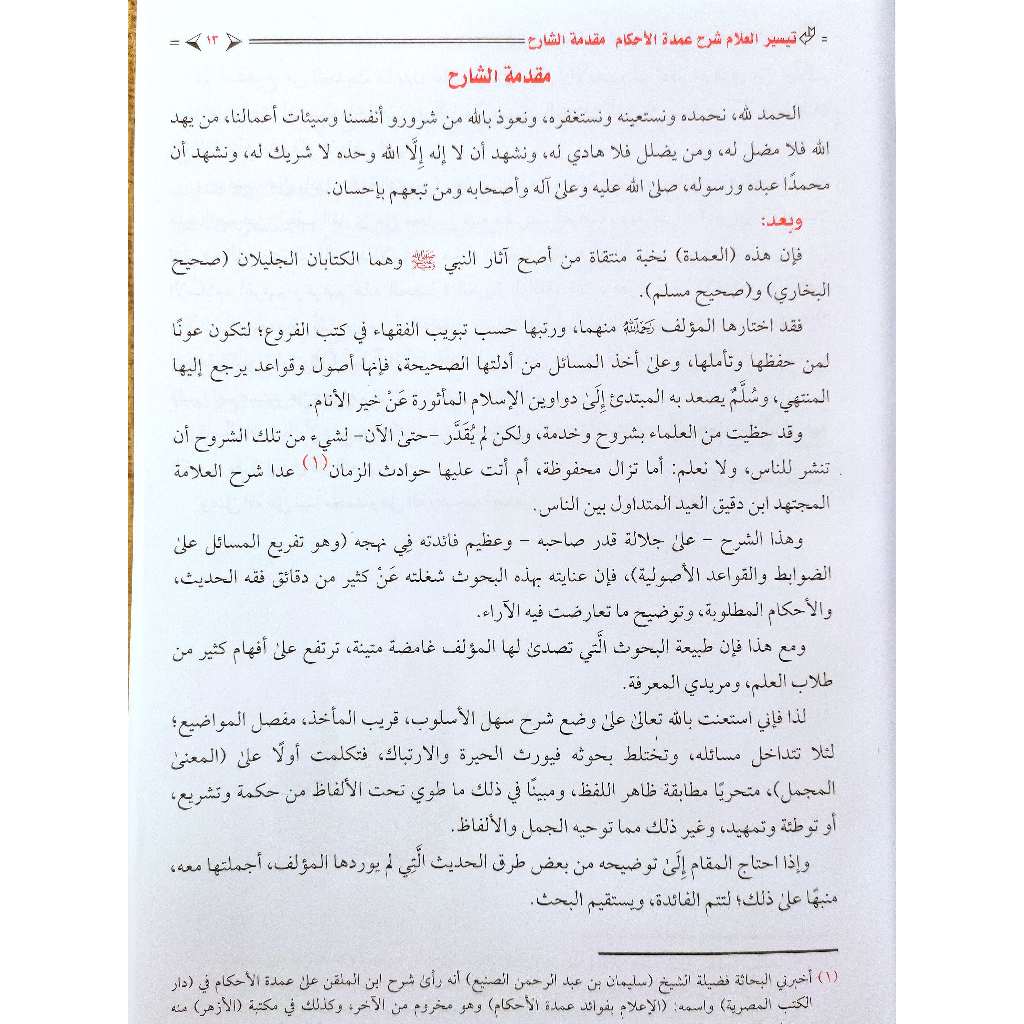 تيسير العلام شرح عمدة الأحكام مقدمة الشارح ١٣
مقدمة الشارح
الحمد لله، نحمده ونستعينه ونستغفره، ونعوذ بالله من شرورو أنفسنا وسيئات أعمالنا، من يهد
الله فلا مضل له، ومن يضلل فلا هادي له، ونشهد أن لا إله إلَّا الله وحده لا شريك له، ونشهد أن
محمدًا عبده ورسوله، صلىٰ الله عليه وعلىٰ آله وأصحابه ومن تبعهم بإحسان.
وبعد:
فإن هذه (العمدة) نخبة منتقاة من أصح آثار النبي ﷺ وهما الكتابان الجليلان (صحيح
البخاري) و(صحيح مسلم).
فقد اختارها المؤلف رَحِمَهُ اللهُ منهما، ورتبها حسب تبويب الفقهاء في كتب الفروع؛ لتكون عونًا
لمن حفظها وتأملها، وعلىٰ أخذ المسائل من أدلتها الصحيحة، فإنها أصول وقواعد يرجع إليها
المنتهي، وسُلَّمٌ يصعد به المبتدئ إِلَىٰ دواوين الإسلام المأثورة عَنْ خير الأنام.
وقد حظيت من العلماء بشروح وخدمة، ولكن لم يُقَدَّر –حتىٰ الآن– لشيء من تلك الشروح أن
تنشر للناس، ولا نعلم: أما تزال محفوظة، أم أتت عليها حوادث الزمان(١) عدا شرح العلامة
المجتهد ابن دقيق العيد المتداول بين الناس.
وهذا الشرح – علىٰ جلالة قدر صاحبه – وعظيم فائدته فِي نهجه (وهو تفريع المسائل علىٰ
الضوابط والقواعد الأصولية)، فإن عنايته بهذه البحوث شغلته عَنْ كثير من دقائق فقه الحديث،
والأحكام المطلوبة، وتوضيح ما تعارضت فيه الآراء.
ومع هذا فإن طبيعة البحوث الَّتي تصدىٰ لها المؤلف غامضة متينة، ترتفع علىٰ أفهام كثير من
طلاب العلم، ومريدي المعرفة.
لذا فإني استعنت بالله تعالىٰ علىٰ وضع شرح سهل الأسلوب، قريب المأخذ، مفصل المواضيع؛
لئلا تتداخل مسائله، وتختلط بحوثه فيورث الحيرة والارتباك، فتكلمت أولًا علىٰ (المعنىٰ
المجمل)، متحريًا مطابقة ظاهر اللفظ، ومبينًا في ذلك ما طوي تحت الألفاظ من حكمة وتشريع،
أو توطئة وتمهيد، وغير ذلك مما توحيه الجمل والألفاظ.
وإذا احتاج المقام إِلَىٰ توضيحه من بعض طرق الحديث الَّتِي لم يوردها المؤلف، أجملتها معه،
منبهًا علىٰ ذلك؛ لتتم الفائدة، ويستقيم البحث.
(١) أخبرني البحاثة فضيلة الشيخ (سليمان بن عبد الرحمن الصنيع) أنه رأىٰ شرح ابن الملقن علىٰ عمدة الأحكام في (دار
الكتب المصرية) واسمه: (الإعلام بفوائد عمدة الأحكام) وهو مخروم من الآخر، وكذلك في مكتبة (الأزهر) منه